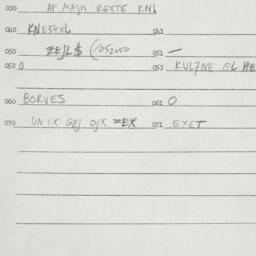 030 AF MAJN REXTE KNL
040 KNE54XL 041
050 ZEJL$ (/052050 051 —
052 0 053 KUL7NE GL HE
060 BORVES 061 0
070 UN IX GZJ OJX =EX 071 EXET